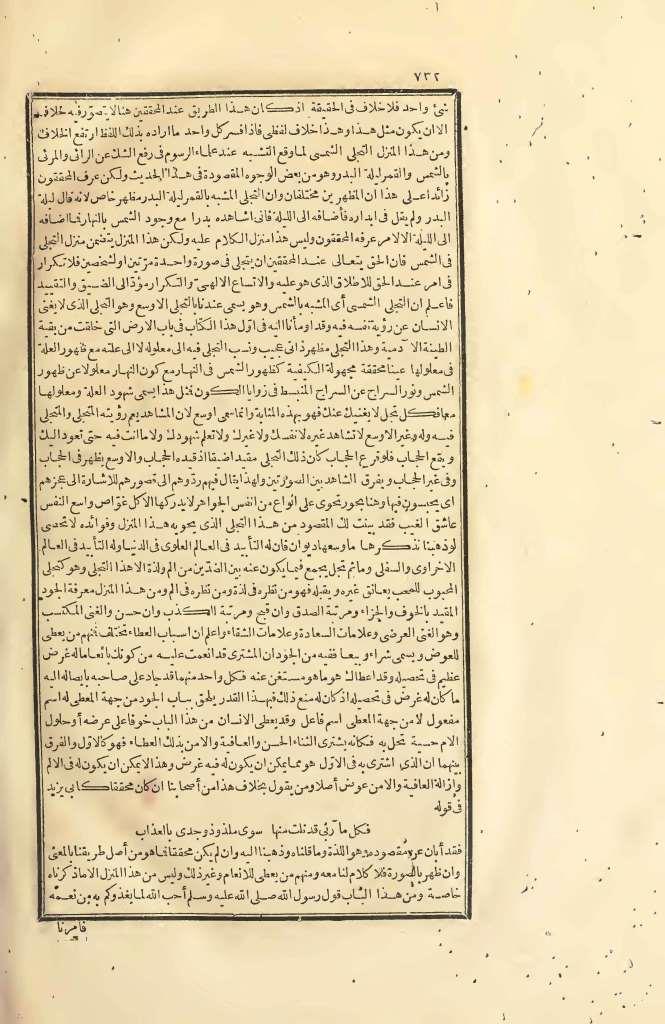 ٧٣٢
شئ واحد فلا خلاف فى الحقيقة اذ كان هذا الطريق عند المحققين هنا لا يتصور فيه خلاف
الا ان يكون مثل هذا وهذا خلاف لفظى فاذا فسر كل واحد ما اراده بذلك اللفظ ارتفع الخلاف
ومن هذا المنزل التجلى الشمسى لما وقع التشبه عند علماء الرسوم فى رفع الشك عن الرائى والمرئى
بالشمس والقمر ليلة البدر وهو من بعض الوجوه المقصودة فى هذا الحديث ولكن عرف المحققون
زائدا على هذا ان المظهرين مختلفان وان التجلى المشبه بالقمر ليلة البدر مظهر خاص لانه قال ليلة
البدر ولم يقل فى ابداره فأضافه الى الليلة فانى اشاهده بدرا مع وجود الشمس بالنهار فما اضافه
الى الليلة الا لامر عرفه المحققون وليس هذا منزل الكلام عليه ولكن هذا المنزل يتضمن منزل التجلى
فى الشمس فان الحق يتعالى عند المحققين ان يتجلى فى صورة واحدة مرتين او لشخصين فلا تكرار
فى امر عند الحق للاطلاق الذى هو عليه والاتساع الالهى والتكرار مؤد الى الضيق والتقييد
فاعلم ان التجلى الشمسى أى المشبه بالشمس وهو يسمى عندنا بالتجلى الاوسع وهو التجلى الذى لا يغنى
الانسان عن رؤية نفسه فيه وقد اومأنا اليه فى اول هذا الكتاب فى باب الارض التى خلقت من بقية
الطينة الآدمية وهذا التجلى مظهر ذاتى عجيب ونسب التجلى فيه الى معلوله لا الى علته مع ظهور العلة
فى معلولها عينا محققة مجهولة الكيفية كظهور الشمس فى النهار مع كون النهار معلولا عن ظهور
الشمس ونور السراج عن السراج المنبسط فى زوايا الكون فمثل هذا يسمى شهود العلة ومعلولها
معا فكل تجل لا يغنيك عنك فهو بهذه المثابة وانما سمى اوسع لان المشاهد يعم رؤيته المتجلى والمتجلى
فيه وله وغير الاوسع لا تشاهد غيره لا نفسك ولا غيرك ولا تعلم شهودك ولا ما انت فيه حتى تعود اليك
ويقع الحجاب فلوقوع الحجاب كان ذلك التجلى مقيدا ضيقا اذ قيده الحجاب والاوسع يظهر فى الحجاب
وفى غير الحجاب ويفرق الشاهد بين الصورتين ولهذا يقال فيهم ردوهم الى قصورهم للاشارة الى عجزهم
اى يحبسون فيها وهنا بحور تحوى على انواع من انفس الجواهر لا يدركها الا كل غواص واسع النفس
عاشق الغيب فقد بينت لك المقصود من هذا التجلى الذى يحويه هذا المنزل وفوائده لا تحصى
لو ذهبنا نذكرها ما وسعها ديوان فان له التأييد فى العالم العلوى فى الدنيا وله التأييد فى العالم
الاخراوى والسفلى وما ثم تجل يجمع فيما يكون عنه بين الضدين من الم ولذة الا هذا التجلى وهو كتجلى
المحبوب للمحب يعانق غيره ويقبله فهو من نظره فى لذة ومن نظره فى الم ومن هذا المنزل معرفة الجود
المقيد بالخوف والجزاء ومرتبة الصدق وان قبح ومرتبة الكذب وان حسن والغنى المكتسب
وهو الغنى العرضى وعلامات السعادة وعلامات الشقاء واعلم ان اسباب العطاء تختلف فمنهم من يعطى
للعوض ويسمى شراء وبيعا ففيه من الجود ان المشترى قد انعمت عليه من كونك بائعا ما له غرض
عظيم فى تحصيله وقد اعطاك هو ما هو مستغن عنه فكل واحد منهما قد جاد على صاحبه بايصاله اليه
ما كان له غرض فى تحصيله اذ كان له منع ذلك فبهذا القدر يلحق بباب الجود من جهة المعطى له اسم
مفعول لا من جهة المعطى اسم فاعل وقد يعطى الانسان من هذا الباب خوفا على عرضه أو حلول
الام حسية تحل به فكانه يشترى الثناء الحسن والعافية والامن بذلك العطاء فهو كالاول والفرق
بينهما ان الذى اشترى به فى الاول هو مما يمكن ان يكون له فيه غرض وهذا لا يمكن ان يكون له فى الالم
وازالة العافية والامن عوض أصلا ومن يقول بخلاف هذا من أصحابنا ان كان محققا كابى يزيد
فى قوله
فكل مآربى قد نلت منها سوى ملذوذ وجدى بالعذاب
فقد أبان عن مقصوده وهو اللذة وما قلناه وذهبنا اليه وان لم يكن محققا فما هو من أصل طريقنا بالمعنى
وان ظهر بالصورة فلا كلام لنا معه ومنهم من يعطى للانعام وغير ذلك وليس من هذا المنزل الا ما ذكرناه
خاصة ومن هذا الباب قول رسول الله صلى الله عليه وسلم أحب الله لما يغذوكم به من نعمه
فأمرنا